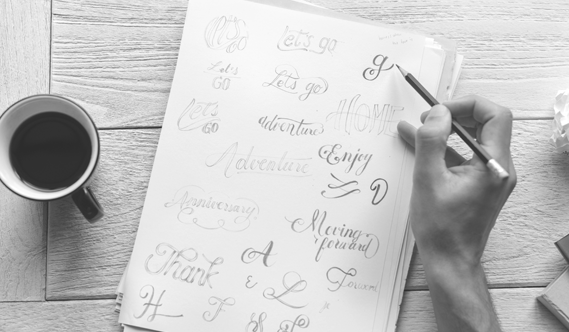 Let's
GO
Let's go
g
Let's
GO
Let's go
Let's
GO
adventure
HOME
Adventure
Enjoy
D
Anniversary
Moving
forward
Thank
A
& L
Forward
H
F
& S